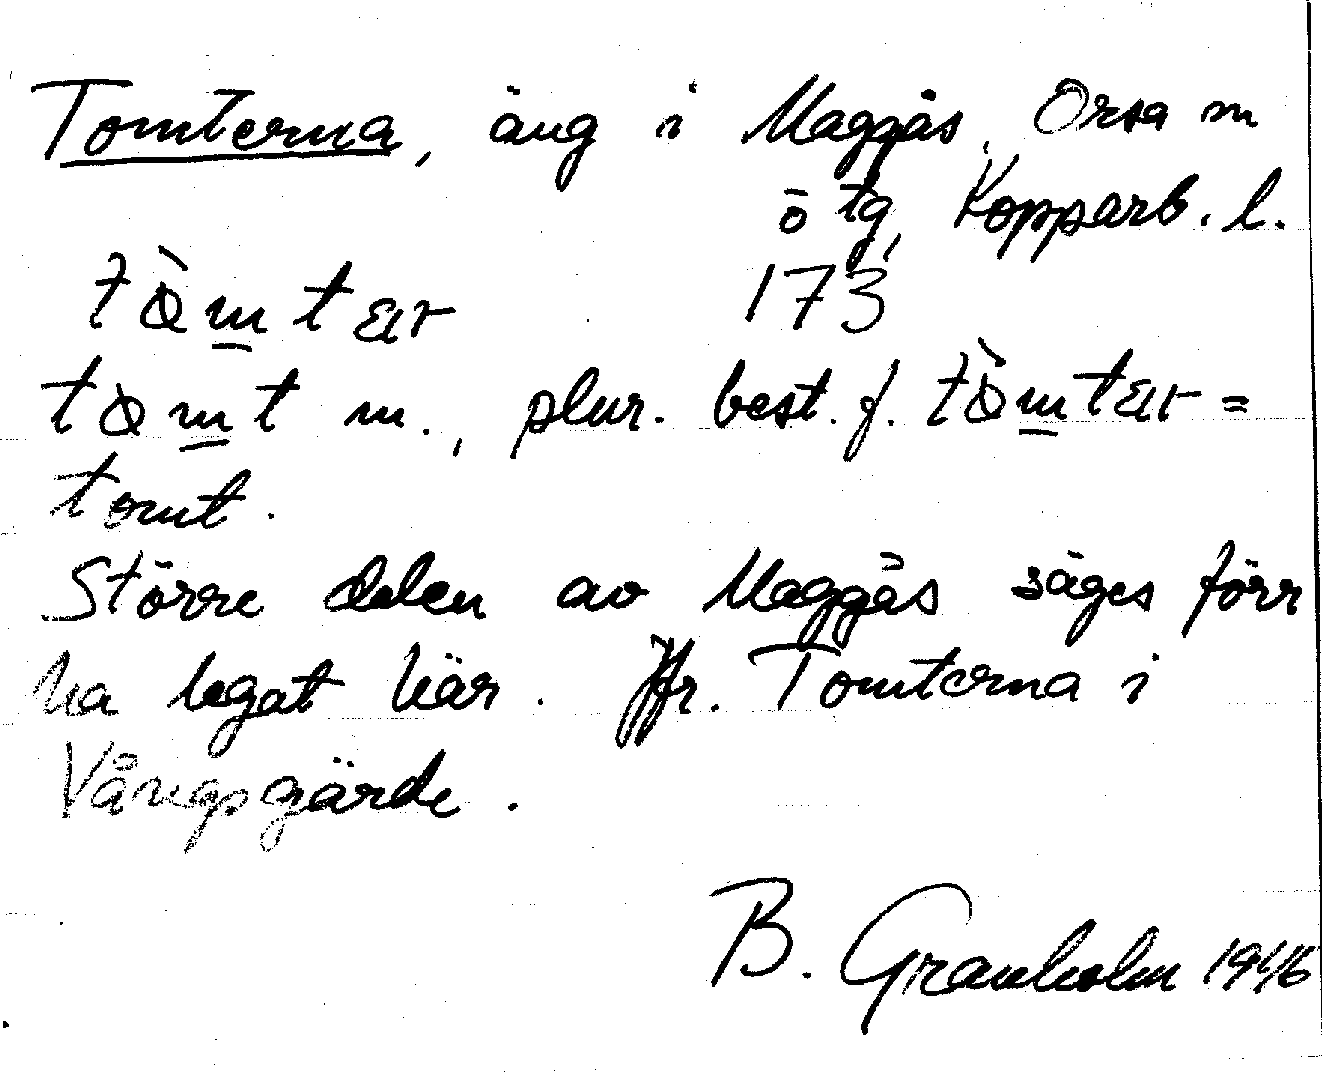 Tomterna, äng i Maggås, Orsa sn
ö tg, Kopparb. l.
tò̀mtær 173
tòmt m., plur. best. f. tò̀mtær =
tomt.
Större delen av Maggås säges förr
ha legat här. Jfr. Tomterna i
Vångsgärde.
B. Granholm 1946